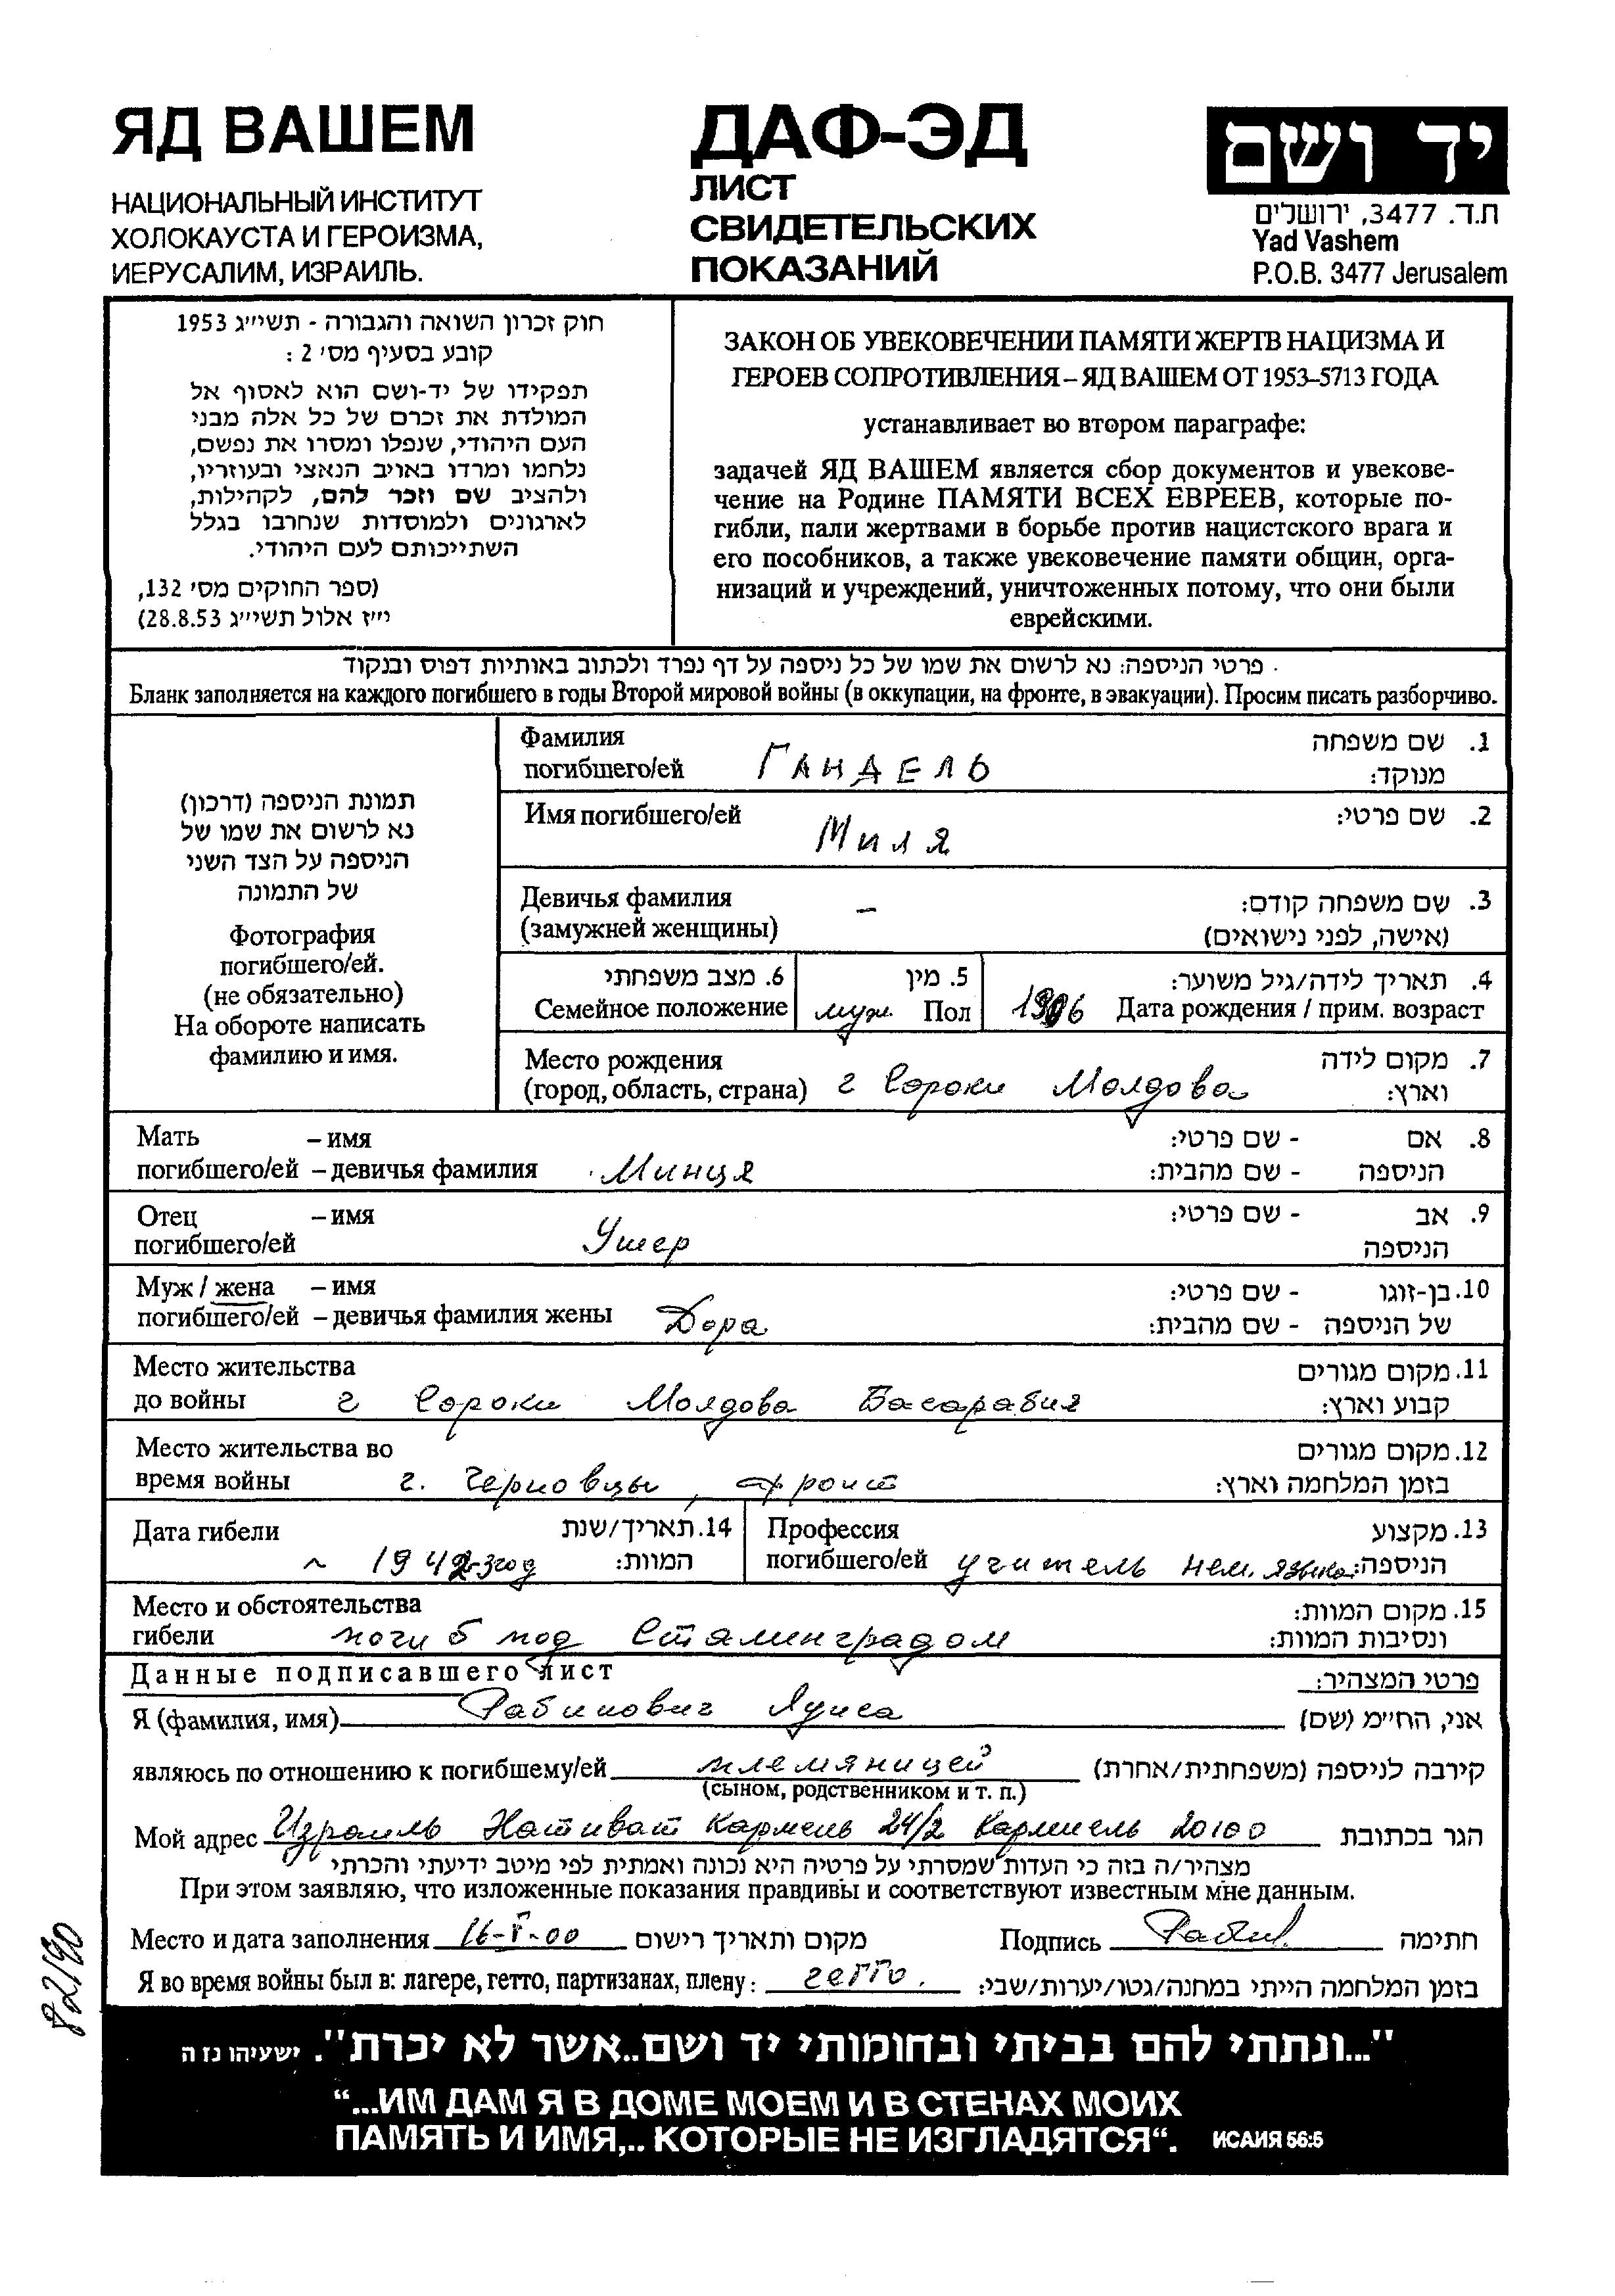 ЯД ВАШЕМ
НАЦИОНАЛЬНЫЙ ИНСТИТУТ
ХОЛОКАУСТА И ГЕРОИЗМА,
ИЕРУСАЛИМ, ИЗРАИЛЬ.
ДАФ-ЭД
ЛИСТ
СВИДЕТЕЛЬСКИХ
ПОКАЗАНИЙ
יד ושם
ת.ד. 3477, ירושלים
Yad Vashem
P.O.B. 3477 Jerusalem
חוק זכרון השואה והגבורה - תשי״ג 1953
קובע בסעיף מס׳ 2 :
תפקידו של יד-ושם הוא לאסוף אל
המולדת את זכרם של כל אלה מבני
העם היהודי, שנפלו ומסרו את נפשם,
נלחמו ומרדו באויב הנאצי ובעוזריו,
ולהציב שם וזכר להם, לקהילות,
לארגונים ולמוסדות שנחרבו בגלל
השתייכותם לעם היהודי.
(ספר החוקים מס׳ 132,
י״ז אלול תשי״ג 28.8.53)
ЗАКОН ОБ УВЕКОВЕЧЕНИИ ПАМЯТИ ЖЕРТВ НАЦИЗМА И
ГЕРОЕВ СОПРОТИВЛЕНИЯ – ЯД ВАШЕМ ОТ 1953–5713 ГОДА
устанавливает во втором параграфе:
задачей ЯД ВАШЕМ является сбор документов и увекове-
чение на Родине ПАМЯТИ ВСЕХ ЕВРЕЕВ, которые по-
гибли, пали жертвами в борьбе против нацистского врага и
его пособников, а также увековечение памяти общин, орга-
низаций и учреждений, уничтоженных потому, что они были
еврейскими.
פרטי הניספה: נא לרשום את שמו של כל ניספה על דף נפרד ולכתוב באותיות דפוס ובנקוד
Бланк заполняется на каждого погибшего в годы Второй мировой войны (в оккупации, на фронте, в эвакуации). Просим писать разборчиво.
תמונת הניספה (דרכון)
נא לרשום את שמו של
הניספה על הצד השני
של התמונה
Фотография
погибшего/ей.
(не обязательно)
На обороте написать
фамилию и имя.
Фамилия 1. שם משפחה
погибшего/ей ГАНДЕЛЬ מנוקד:
Имя погибшего/ей Миля 2. שם פרטי:
Девичья фамилия – 3. שם משפחה קודם:
(замужней женщины) (אישה, לפני נישואים)
6. מצב משפחתי 5. מין 4. תאריך לידה/גיל משוער:
Семейное положение муж. Пол 1906 Дата рождения / прим. возраст
Место рождения 7. מקום לידה
(город, область, страна) г Сороки Молдова וארץ:
Мать – имя 8. אם - שם פרטי:
погибшего/ей – девичья фамилия Минця הניספה - שם מהבית:
Отец – имя 9. אב - שם פרטי:
погибшего/ей Ушер הניספה
Муж / жена – имя 10. בן-זוגו - שם פרטי:
погибшего/ей – девичья фамилия жены Дора של הניספה - שם מהבית:
Место жительства 11. מקום מגורים
до войны г Сороки Молдова Басарабия קבוע וארץ:
Место жительства во 12. מקום מגורים
время войны г. Черновцы, фронт בזמן המלחמה וארץ:
Дата гибели 14. תאריך/שנת
~ 1942-3год המוות:
Профессия 13. מקצוע
погибшего/ей учитель нем. языка הניספה:
Место и обстоятельства 15. מקום המוות:
гибели погиб под Сталинградом ונסיבות המוות:
Данные подписавшего лист פרטי המצהיר:
Я (фамилия, имя) Рабинович Луиса אני, הח״מ (שם)
являюсь по отношению к погибшему/ей племяницей קירבה לניספה (משפחתית/אחרת)
(сыном, родственником и т. п.)
Мой адрес Израиль Нативат Кармель 24/2 Кармиель 20100 הגר בכתובת
מצהיר/ה בזה כי העדות שמסרתי על פרטיה היא נכונה ואמתית לפי מיטב ידיעתי והכרתי
При этом заявляю, что изложенные показания правдивы и соответствуют известным мне данным.
Место и дата заполнения 16-V-00 מקום ותאריך רישום Подпись חתימה
Я во время войны был в: лагере, гетто, партизанах, плену: гетто. בזמן המלחמה הייתי במחנה/גטו/יערות/שבי:
82/90
"...ונתתי להם בביתי ובחומותי יד ושם..אשר לא יכרת". ישעיהו נז ה
“...ИМ ДАМ Я В ДОМЕ МОЕМ И В СТЕНАХ МОИХ
ПАМЯТЬ И ИМЯ,.. КОТОРЫЕ НЕ ИЗГЛАДЯТСЯ“. ИСАИЯ 56:5